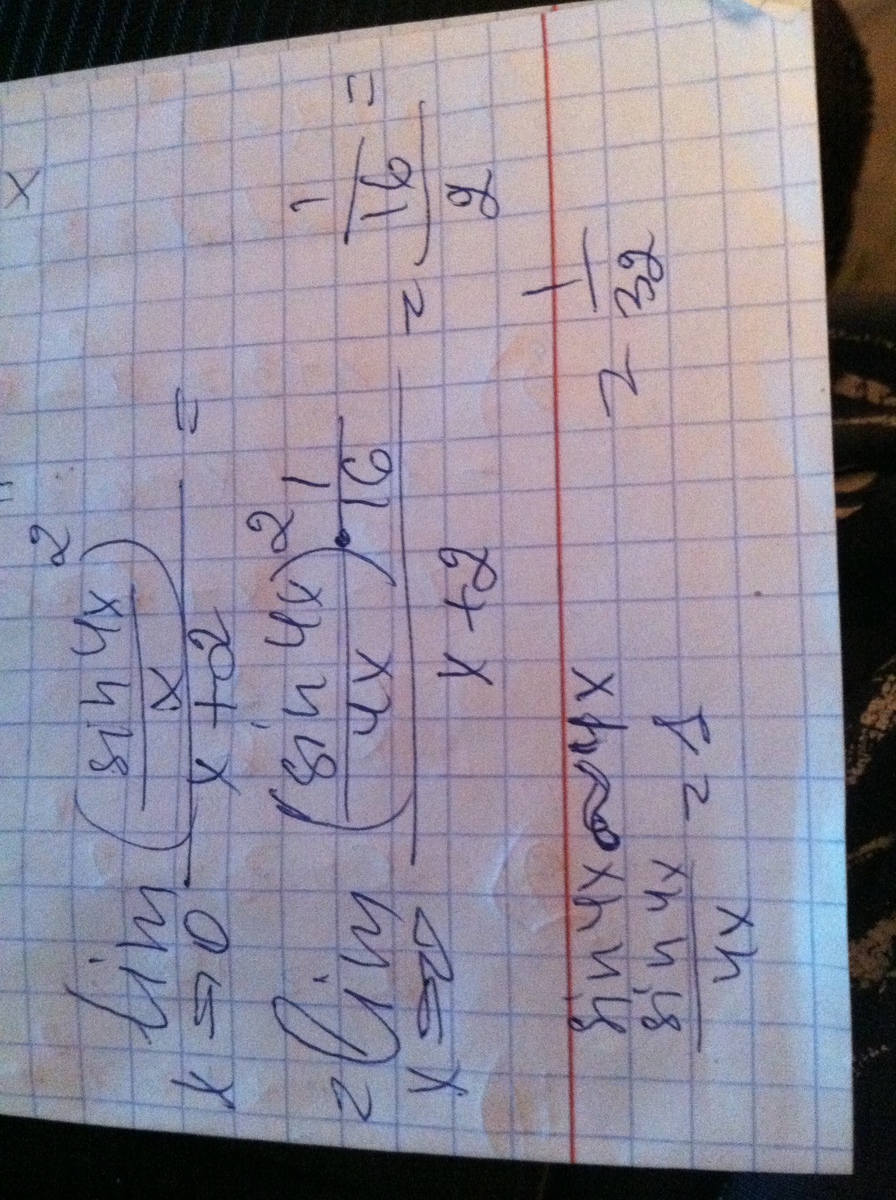 x
lim_{x→0} (sin 4x / x)² / (x+2) =
= lim_{x→0} (sin 4x / 4x)² · 1/16 / (x+2) = (1/16) / 2 =
= 1/32
sin 4x ~ 4x
sin 4x / 4x = 1